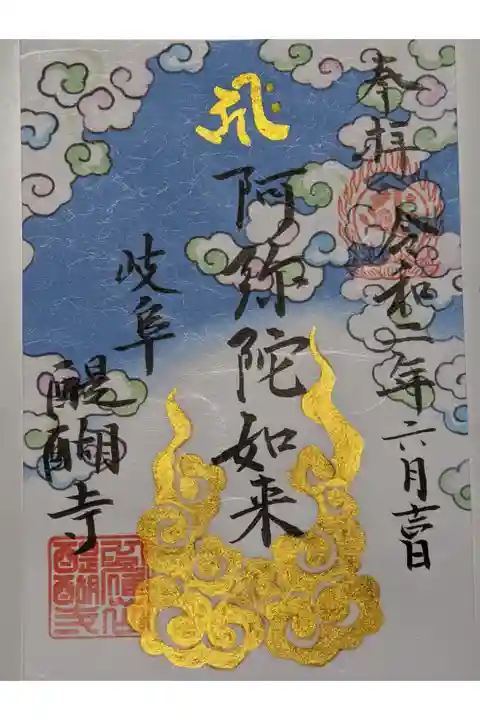 奉拝 令和二年六月吉日
阿弥陀如来
岐阜
醍醐寺